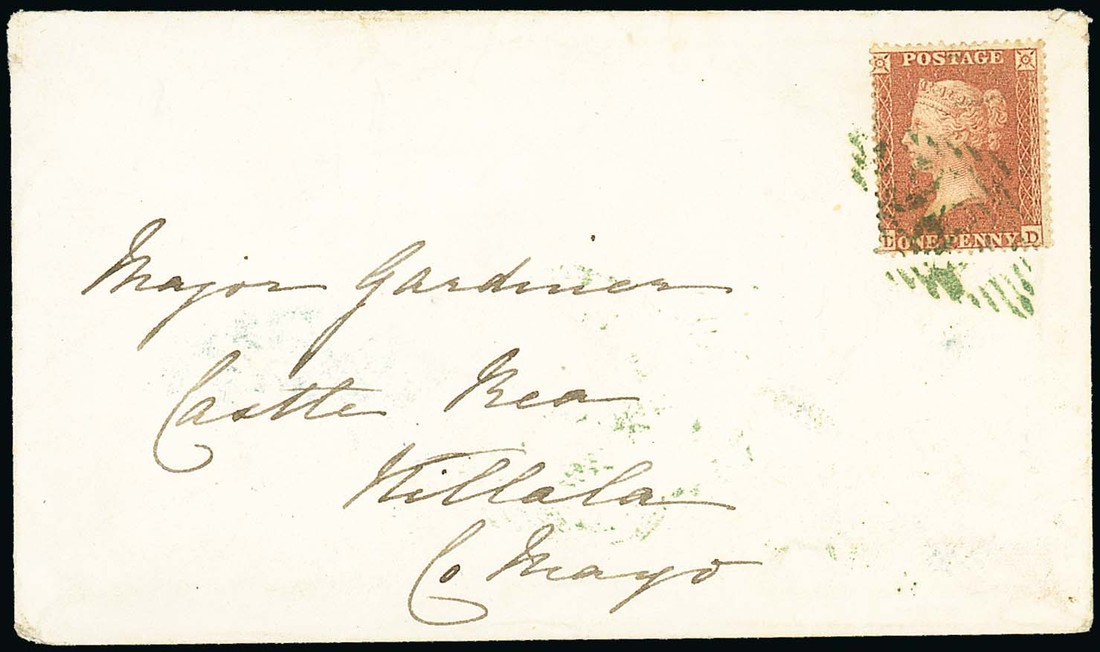 POSTAGE
L ONE PENNY D
Major Gardiner
Castle Rea
Killala
Co Mayo